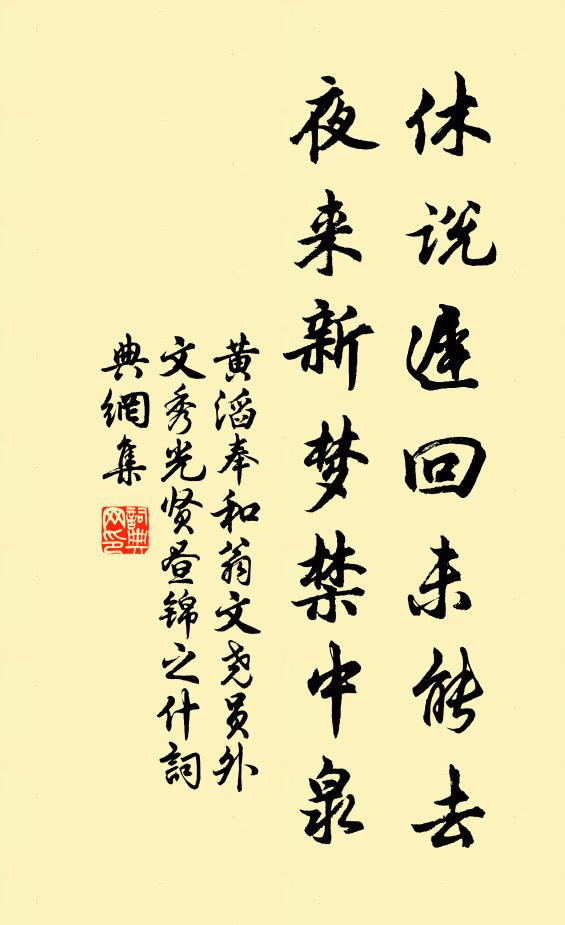 休说遲回未能去
夜来新梦禁中泉
黄滔奉和翁文尧员外
文秀光贤昼锦之什詞
典網集
詞典网印